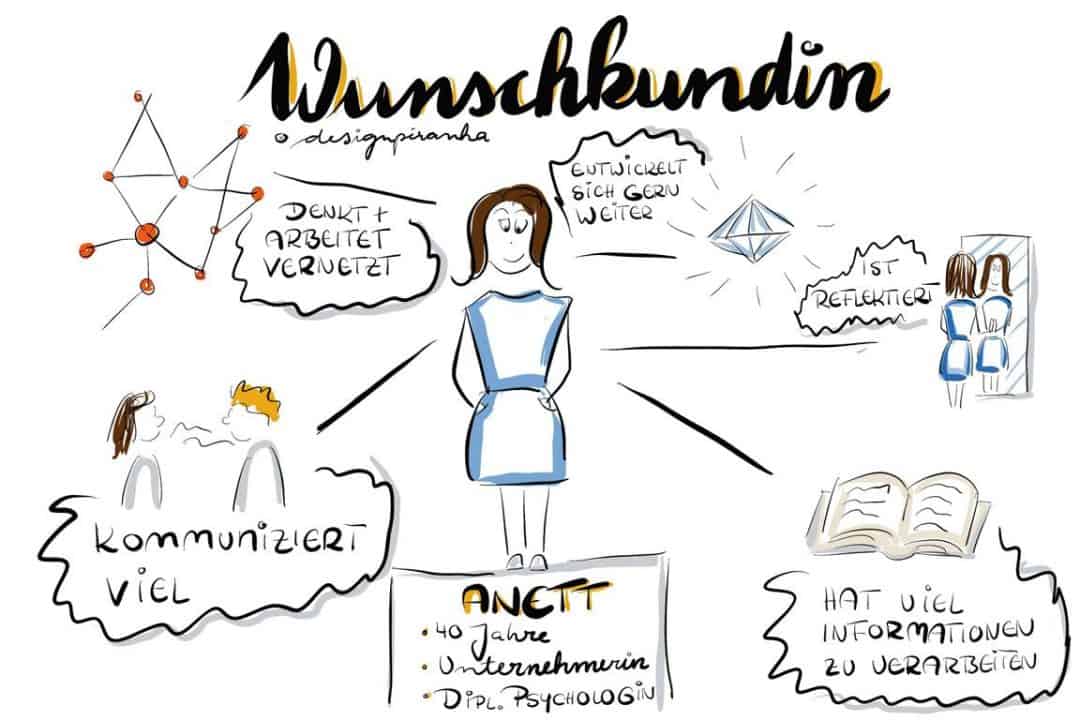 Wunschkundin
designpiranha
DENKT +
ARBEITET
VERNETZT
ENTWICKELT
SICH GERN
WEITER
IST
REFLEKTIERT
KOMMUNIZIERT
VIEL
ANETT
• 40 Jahre
• Unternehmerin
• DIPL. PSYCHOLOGIN
HAT VIEL
INFORMATIONEN
ZU VERARBEITEN